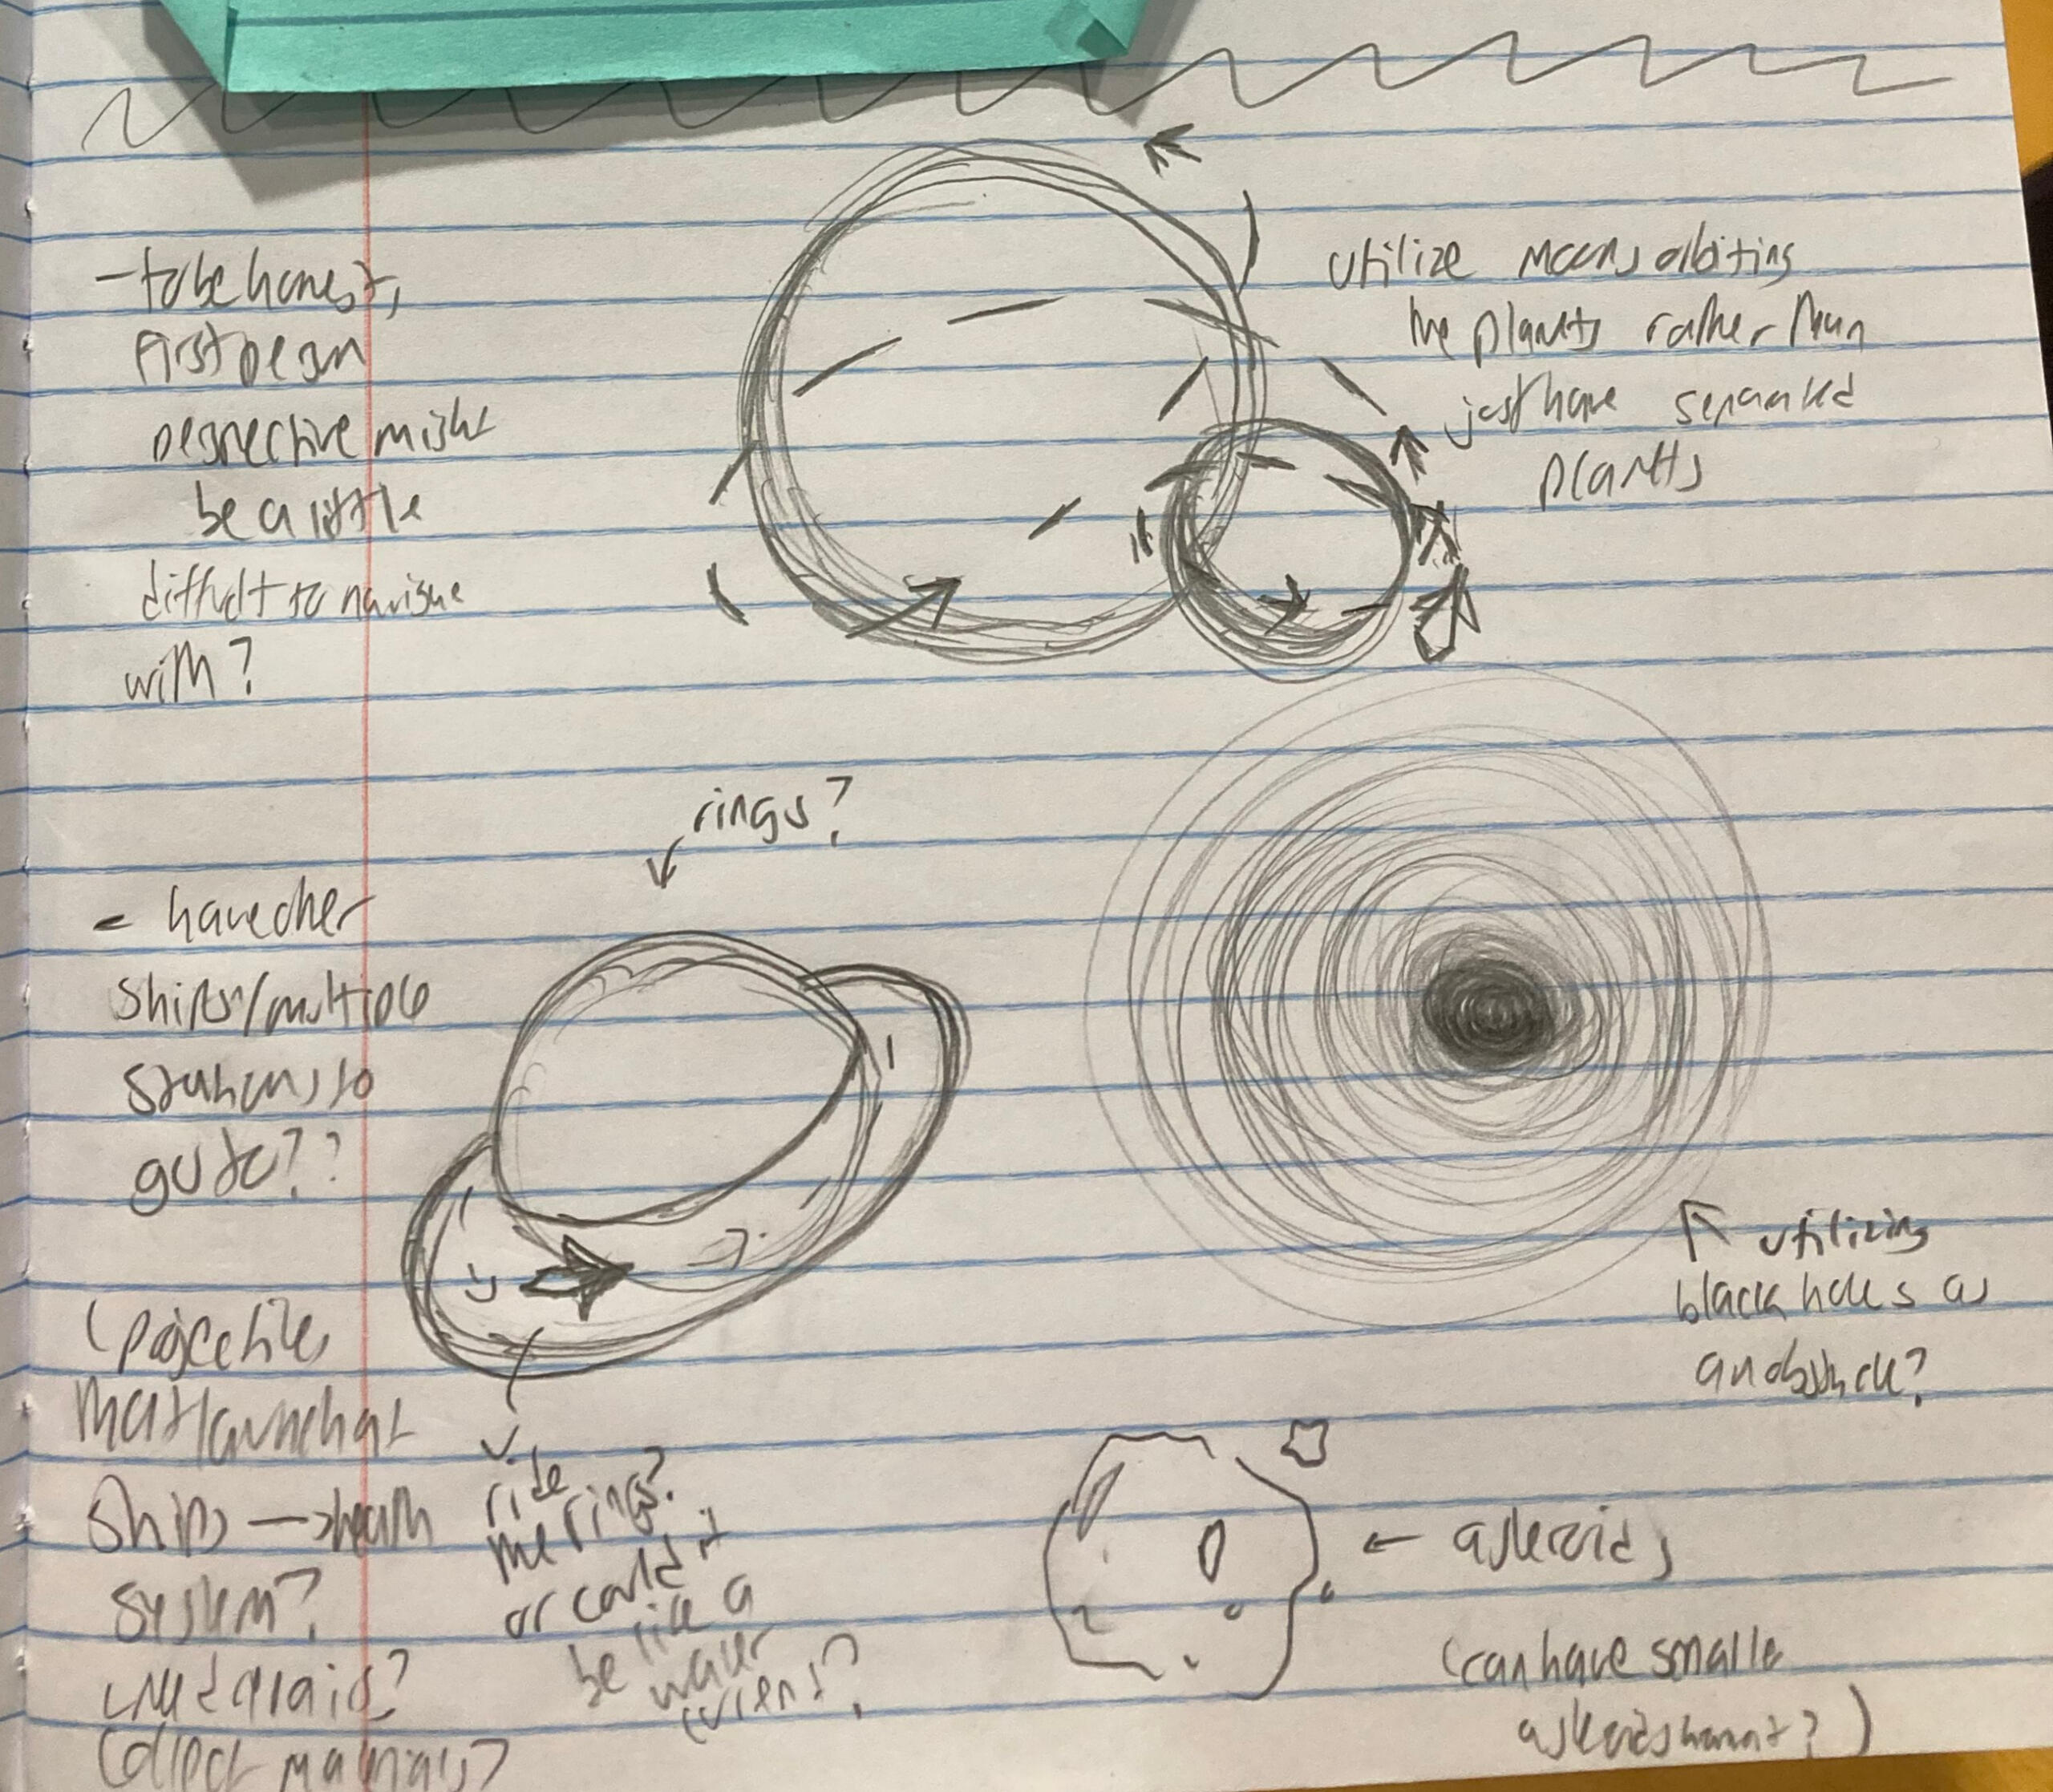 - to be honest,
first person
perspective might
be a little
difficult to navigate
with?
utilize moons orbiting
the planets rather than
just have separated
planets
rings?
- have other
ships/multiple
stations to
go to??
(projectiles
that launch at
ships → health
system?
need repairs?
collect materials?
ride
the rings?
or could it
be like a
water
current?
↖ utilizing
black holes as
an obstacle?
← asteroids
(can have smaller
asteroids)